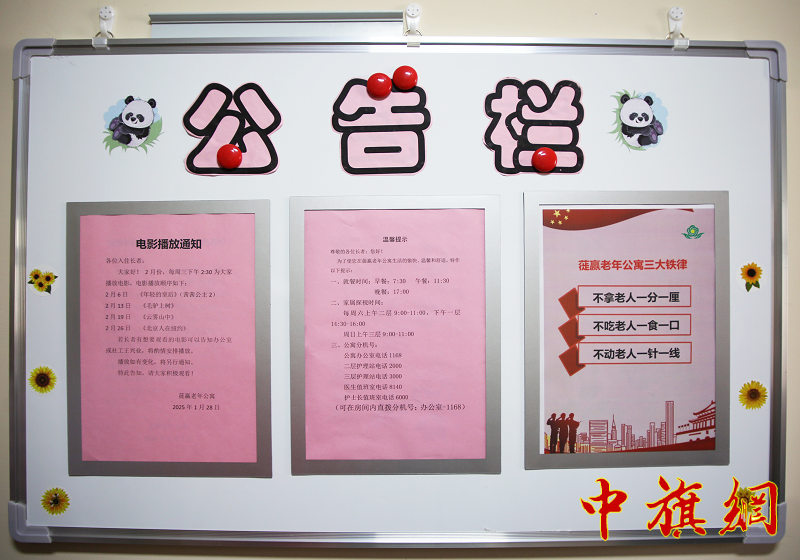 公告栏
电影播放通知
各位入住长者:
大家好! 2月份, 每周三下午2:30为大家
播放电影, 电影播放顺序如下:
2月6日 《年轻的皇后》(茜茜公主2)
2月13日 《毛驴上树》
2月19日 《云雾山中》
2月26日 《北京人在纽约》
若长者有想要观看的电影可以告知办公室
或社工王兴业, 将酌情安排播放。
播放如有变化, 将另行通知。
特此告知, 请大家积极观看!
蓰赢老年公寓
2025年1月28日
温馨提示
尊敬的各位长者: 您好!
为了使您在蓰赢老年公寓生活的愉快、温馨和舒适, 特作
以下提示:
一、就餐时间: 早餐: 7:30 午餐: 11:30
晚餐: 17:00
二、家属探视时间:
每周六上午二层9:00-11:00, 下午一层
14:30-16:00
周日上午三层9:00-11:00
三、公寓分机号:
公寓办公室电话1168
二层护理站电话2000
三层护理站电话3000
医生值班室电话8140
护士长值班室电话6000
(可在房间内直拨分机号: 办公室-1168)
蓰赢老年公寓三大铁律
不拿老人一分一厘
不吃老人一食一口
不动老人一针一线
中旗網